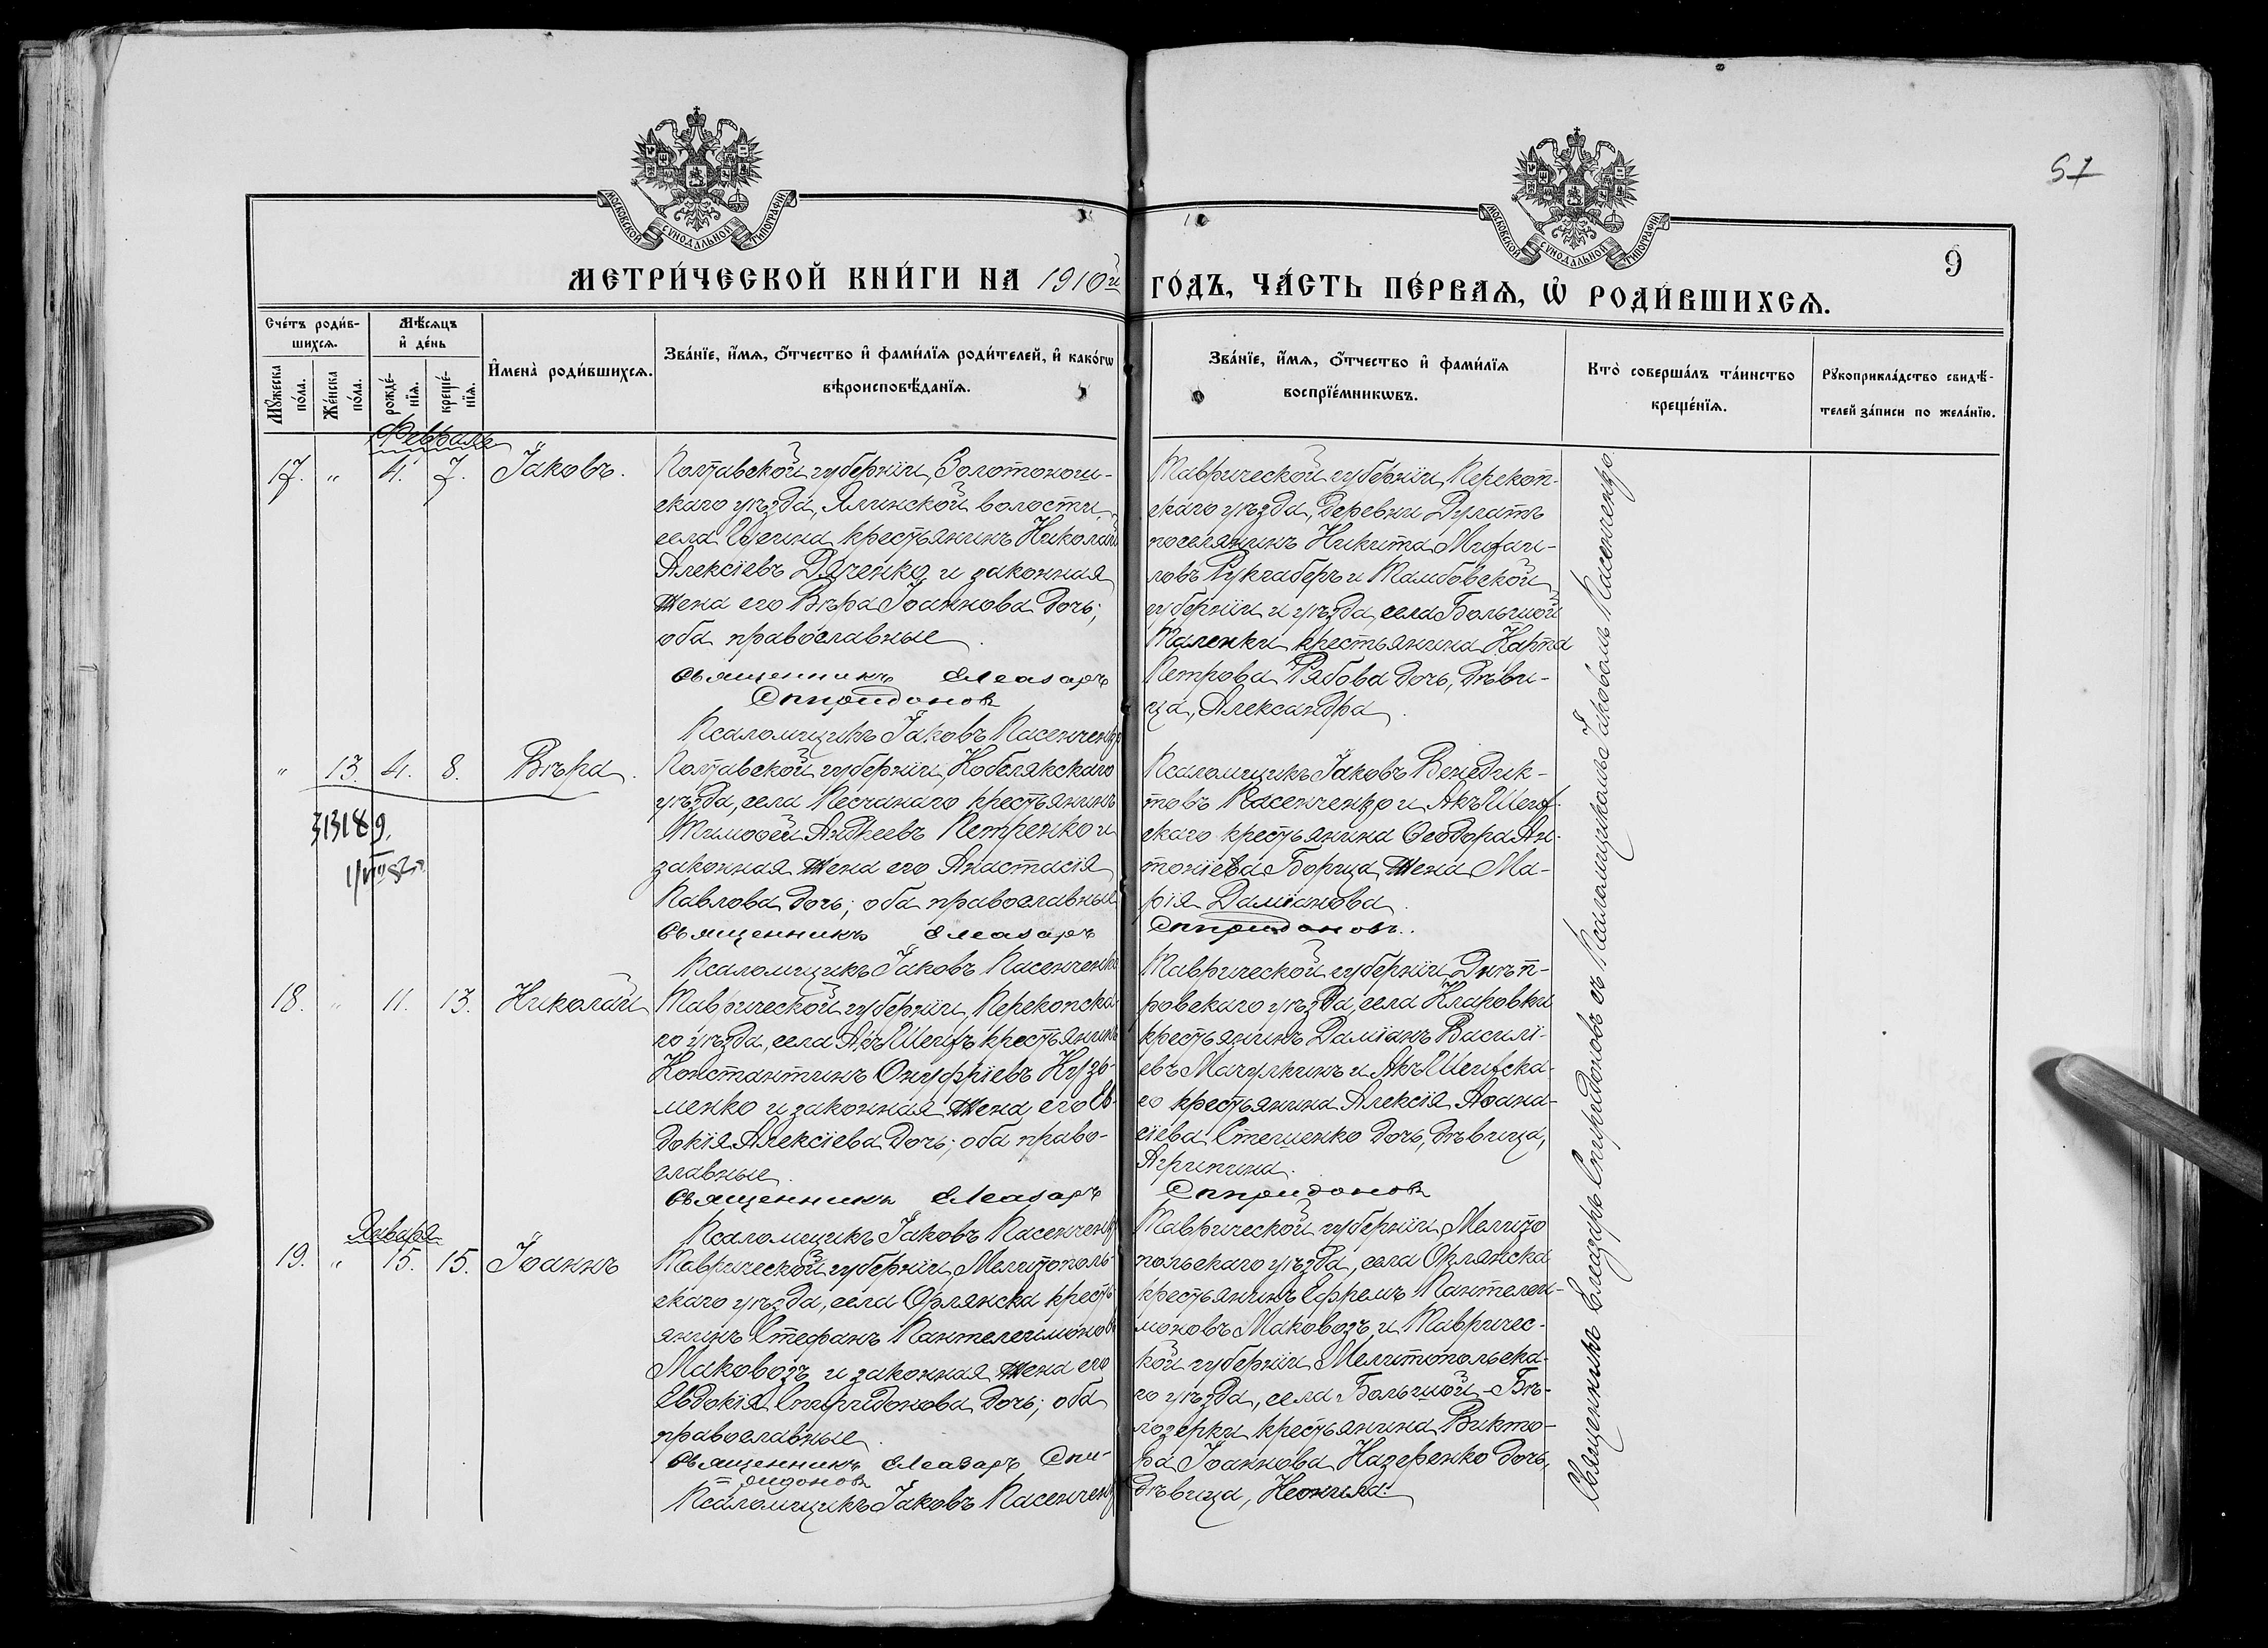 57
МОСКОВСКОЙ СѴНОДАЛЬНОЙ ТИПОГРАФІИ
МОСКОВСКОЙ СѴНОДАЛЬНОЙ ТИПОГРАФІИ
9
МЕТРИ́ЧЕСКОЙ КНИ́ГИ НА 1910й ГО́ДЪ, ЧА́СТЬ ПЕ́РВАѦ, Ѡ҆ РОДИ́ВШИХСѦ.
Сче́тъ роди́в-
шихсѧ.
Мꙋ́жеска
по́ла.
Же́нска
по́ла.
Мѣ́сѧцъ
и҆ де́нь
рожде́-
нїѧ.
креще́-
нїѧ.
И҆мена̀ роди́вшихсѧ.
Зва́нїе, и҆́мѧ, ѻ҆́тчество и҆ фами́лїѧ роди́телей, и҆ како́гѡ
вѣроисповѣ́данїѧ.
Зва́нїе, и҆́мѧ, ѻ҆́тчество и҆ фами́лїѧ
воспрїе́мникѡвъ.
Кто̀ соверша́лъ та́инство
креще́нїѧ.
Рꙋкоприкла́дство свидѣ́-
телей за́писи по жела́нїю.
Февраля
17. " 4. 7. Іаковъ.
Полтавской губерніи, Золотонош-
скаго уѣзда, села
крестьянинъ Николай
Алексіевъ Дяченко и законная
жена его Вѣра Іоаннова дочь;
оба православные.
Священникъ Елеазаръ
Спиридоновъ
Псаломщикъ Іаковъ Пасенченко
Таврической губерніи, Перекоп-
скаго уѣзда, деревни Джлатъ
поселянинъ Никита Михаи-
ловъ Рукгаберъ и Тамбовской
губерніи и уѣзда, села Большой
Таленки крестьянина Карпа
Петрова Рябова дочь, дѣви-
ца, Александра.
" 13. 4. 8. Вѣра.
313189.
Полтавской губерніи, Кобелякскаго
уѣзда, села Песчанаго крестьянинъ
Тимоѳей Андреевъ Петренко и
законная жена его Анастасія
Павлова дочь; оба православные
Священникъ Елеазаръ Спиридоновъ.
Псаломщикъ Іаковъ Пасенченко
Псаломщикъ Іаковъ Венедик-
товъ Пасенченко и АкъШеих-
скаго крестьянина Ѳеодора Ан-
тоніева Борца жена Ма-
рія Даміанова.
18. " 11. 13. Николай
Таврической губерніи, Перекопска-
го уѣзда, села АкъШеихъ крестьянинъ
Константинъ Онуфріевъ Кузь-
менко и законная жена его Ев-
докія Алексіева дочь; оба право-
славные.
Священникъ Елеазаръ Спиридоновъ
Псаломщикъ Іаковъ Пасенченко
Таврической губерніи, Днѣп-
ровскаго уѣзда, села Клановки
крестьянинъ Даміанъ Василі-
евъ Мачулкинъ и АкъШеихска-
го крестьянина Алексія Аѳана-
сіева Стешенко дочь, дѣвица,
Агрипина.
Января
19. " 15. 15. Іоаннъ
Таврической губерніи, Мелитополь-
скаго уѣзда, села Орлянска кресть-
янинъ Стефанъ Пантелеимоновъ
Маковозъ и законная жена его
Евдокія Спиридонова дочь; оба
православные.
Священникъ Елеазаръ Спи-
ридоновъ
Псаломщикъ Іаковъ Пасенченко
Таврической губерніи, Мелито-
польскаго уѣзда, села Орлянска
крестьянинъ Ефремъ Пантелеи-
моновъ Маковозъ и Тавричес-
кой губерніи, Мелитопольска-
го уѣзда, села Большой-Бѣ-
лозерки крестьянина Викто-
ра Іоаннова Назеренко дочь,
дѣвица, Неонила.
Священникъ Елеазаръ Спиридоновъ съ Псаломщикомъ Іаковомъ Пасенченко.